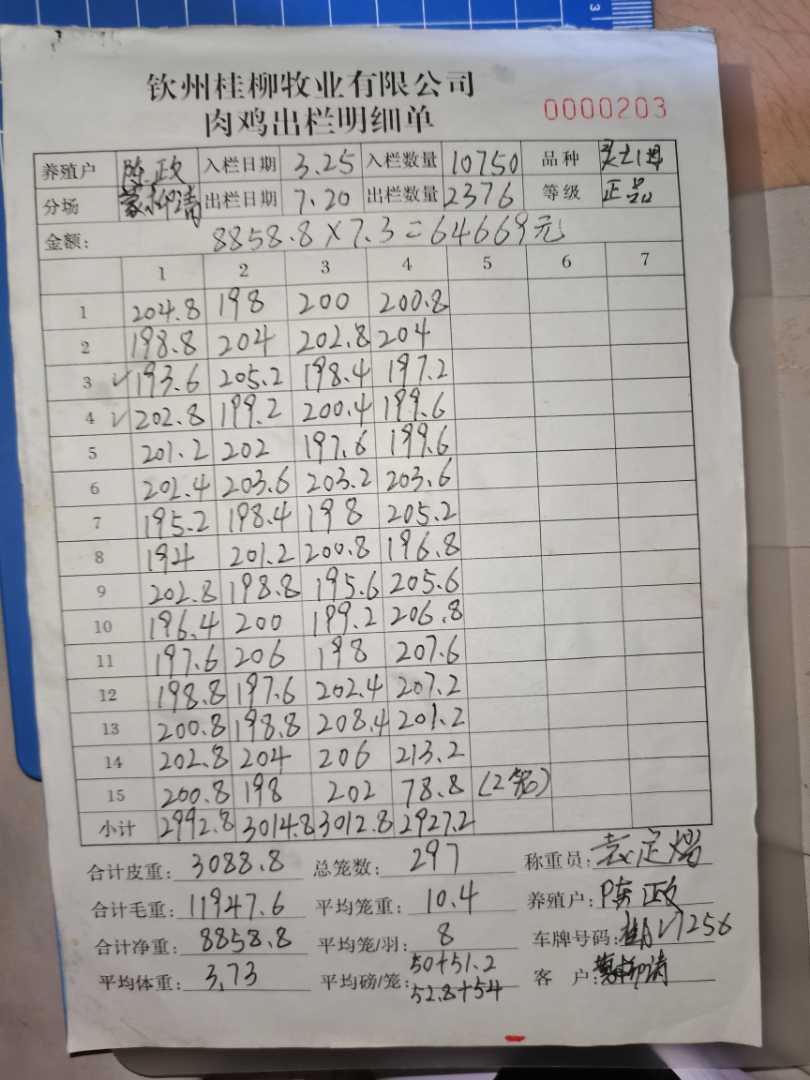 钦州桂柳牧业有限公司
肉鸡出栏明细单 0000203
养殖户 陈政 入栏日期 3.25 入栏数量 10750 品种
分场 蒙柳清 出栏日期 7.20 出栏数量 2376 等级 正品
金额: 8858.8×7.3=64669元
1 2 3 4 5 6 7
1 204.8 198 200 200.8
2 198.8 204 202.8 204
3 ✓193.6 205.2 198.4 197.2
4 ✓202.8 199.2 200.4 199.6
5 201.2 202 197.6 199.6
6 202.4 203.6 203.2 203.6
7 195.2 198.4 198 205.2
8 194 201.2 200.8 196.8
9 202.8 198.8 195.6 205.6
10 196.4 200 199.2 206.8
11 197.6 206 198 207.6
12 198.8 197.6 202.4 207.2
13 200.8 198.8 208.4 201.2
14 202.8 204 206 213.2
15 200.8 198 202 78.8 (2笼)
小计 2992.8 3014.8 3012.8 2927.2
合计皮重: 3088.8 总笼数: 297 称重员: 袁定
合计毛重: 11947.6 平均笼重: 10.4 养殖户: 陈政
合计净重: 8858.8 平均笼/羽: 8 车牌号码: V7256
平均体重: 3.73 平均磅/笼: 50+51.2 客 户: 蒙柳清
52.8+54